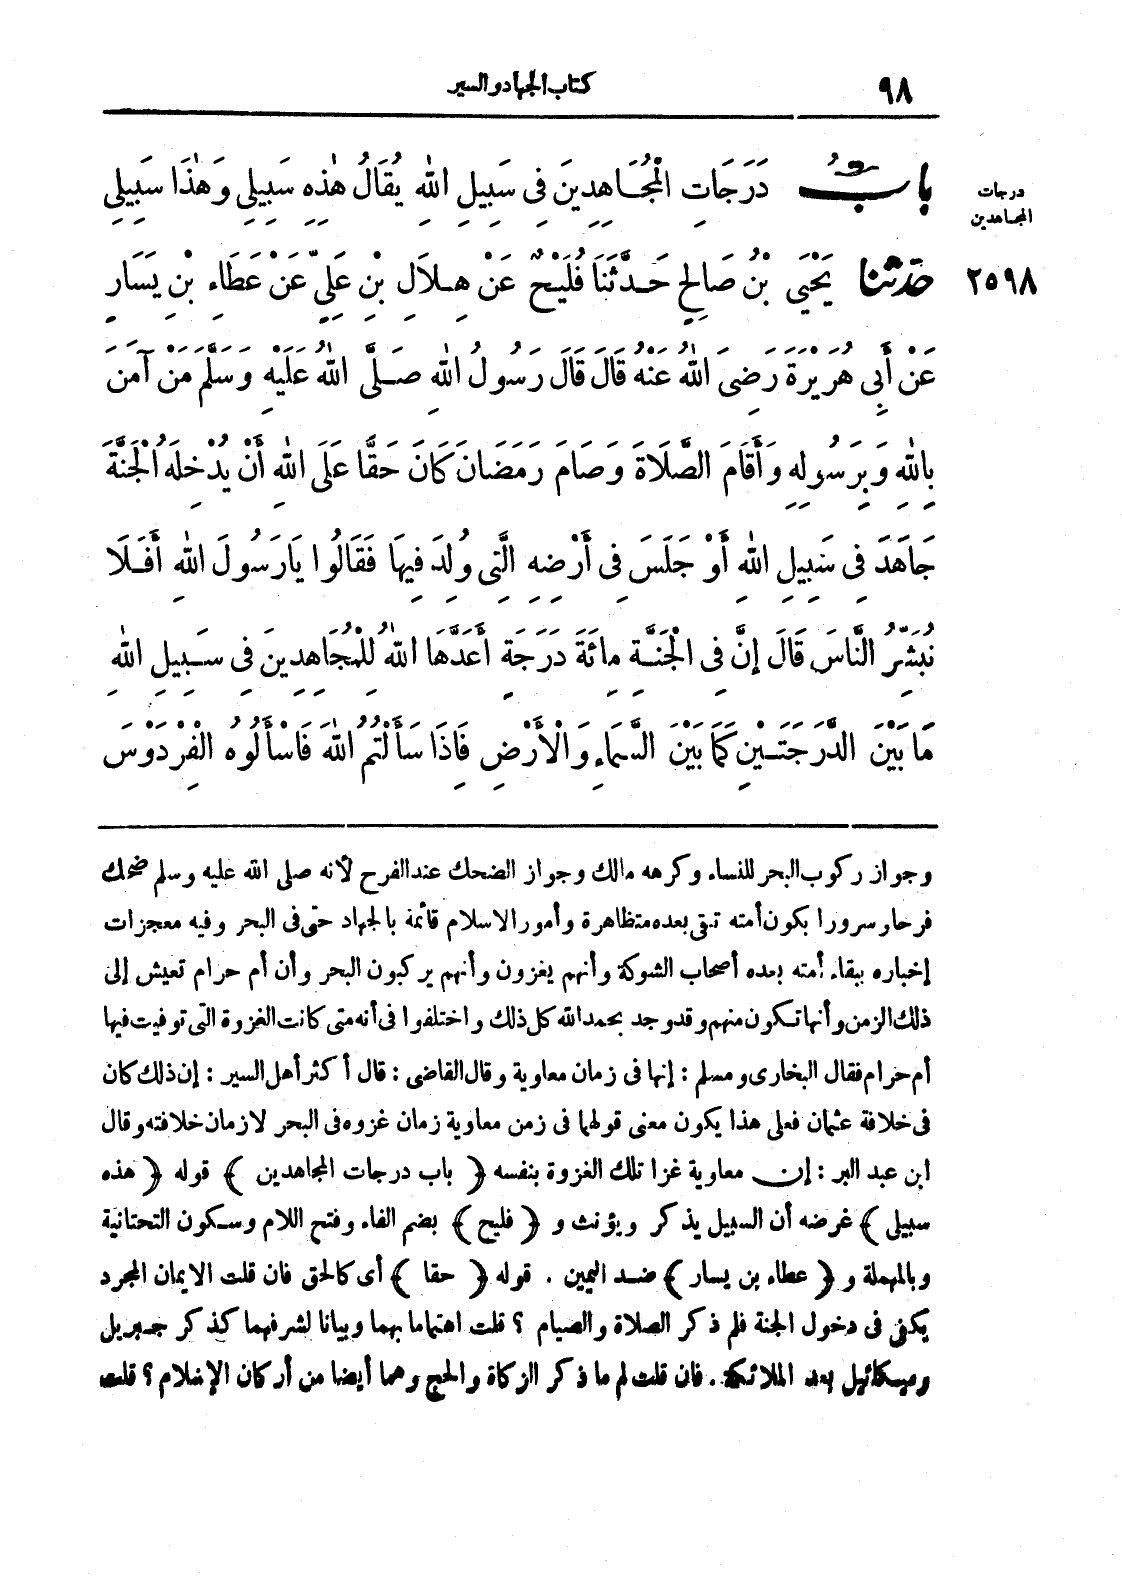 ٩٨
كتاب الجهاد والسير
درجات
المجاهدين
بابُ دَرَجَاتِ الْمُجَاهِدِينَ فِى سَبِيلِ اللهِ يُقَالُ هٰذِهِ سَبِيلِى وَهٰذَا سَبِيلِى
٢٥٩٨
حَدَّثَنَا يَحْيَى بْنُ صَالِحٍ حَدَّثَنَا فُلَيْحٌ عَنْ هِلَالِ بْنِ عَلِيٍّ عَنْ عَطَاءِ بْنِ يَسَارٍ
عَنْ أَبِى هُرَيْرَةَ رَضِىَ اللهُ عَنْهُ قَالَ قَالَ رَسُولُ اللهِ صَلَّى اللهُ عَلَيْهِ وَسَلَّمَ مَنْ آمَنَ
بِاللهِ وَبِرَسُولِهِ وَأَقَامَ الصَّلَاةَ وَصَامَ رَمَضَانَ كَانَ حَقًّا عَلَى اللهِ أَنْ يُدْخِلَهُ الْجَنَّةَ
جَاهَدَ فِى سَبِيلِ اللهِ أَوْ جَلَسَ فِى أَرْضِهِ الَّتِى وُلِدَ فِيهَا فَقَالُوا يَارَسُولَ اللهِ أَفَلَا
نُبَشِّرُ النَّاسَ قَالَ إِنَّ فِى الْجَنَّةِ مِائَةَ دَرَجَةٍ أَعَدَّهَا اللهُ لِلْمُجَاهِدِينَ فِى سَبِيلِ اللهِ
مَا بَيْنَ الدَّرَجَتَيْنِ كَمَا بَيْنَ السَّمَاءِ وَالْأَرْضِ فَاذَا سَأَلْتُمُ اللهَ فَاسْأَلُوهُ الْفِرْدَوْسَ
وجواز ركوب البحر للنساء وكرهه مالك وجواز الضحك عند الفرح لأنه صلى الله عليه وسلم ضحك
فرحا وسرورا بكون أمته تبقى بعده متظاهرة وأمور الاسلام قائمة بالجهاد حتى فى البحر وفيه معجزات
إخباره ببقاء أمته بعده أصحاب الشوكة وأنهم يغزون وأنهم يركبون البحر وأن أم حرام تعيش إلى
ذلك الزمن وأنها تكون منهم وقد وجد بحمد الله كل ذلك واختلفوا فى أنه متى كانت الغزوة التى توفيت فيها
أم حرام فقال البخارى ومسلم : إنها فى زمان معاوية وقال القاضى : قال أكثر أهل السير : إن ذلك كان
فى خلافة عثمان فعلى هذا يكون معنى قولهما فى زمن معاوية زمان غزوه فى البحر لا زمان خلافته وقال
ابن عبد البر : إن معاوية غزا تلك الغزوة بنفسه (باب درجات المجاهدين) قوله (هذه
سبيلى) غرضه أن السبيل يذكر ويؤنث و (فليح) بضم الفاء وفتح اللام وسكون التحتانية
وبالمهملة و (عطاء بن يسار) ضد اليمين . قوله (حقا) أى كالحق فان قلت الايمان المجرد
يكفى فى دخول الجنة فلم ذكر الصلاة والصيام ؟ قلت اهتماما بهما وبيانا لشرفهما كذكر جبريل
وميكائيل بعد الملائكة . فان قلت لم ما ذكر الزكاة والحج وهما أيضا من أركان الإسلام ؟ قلت